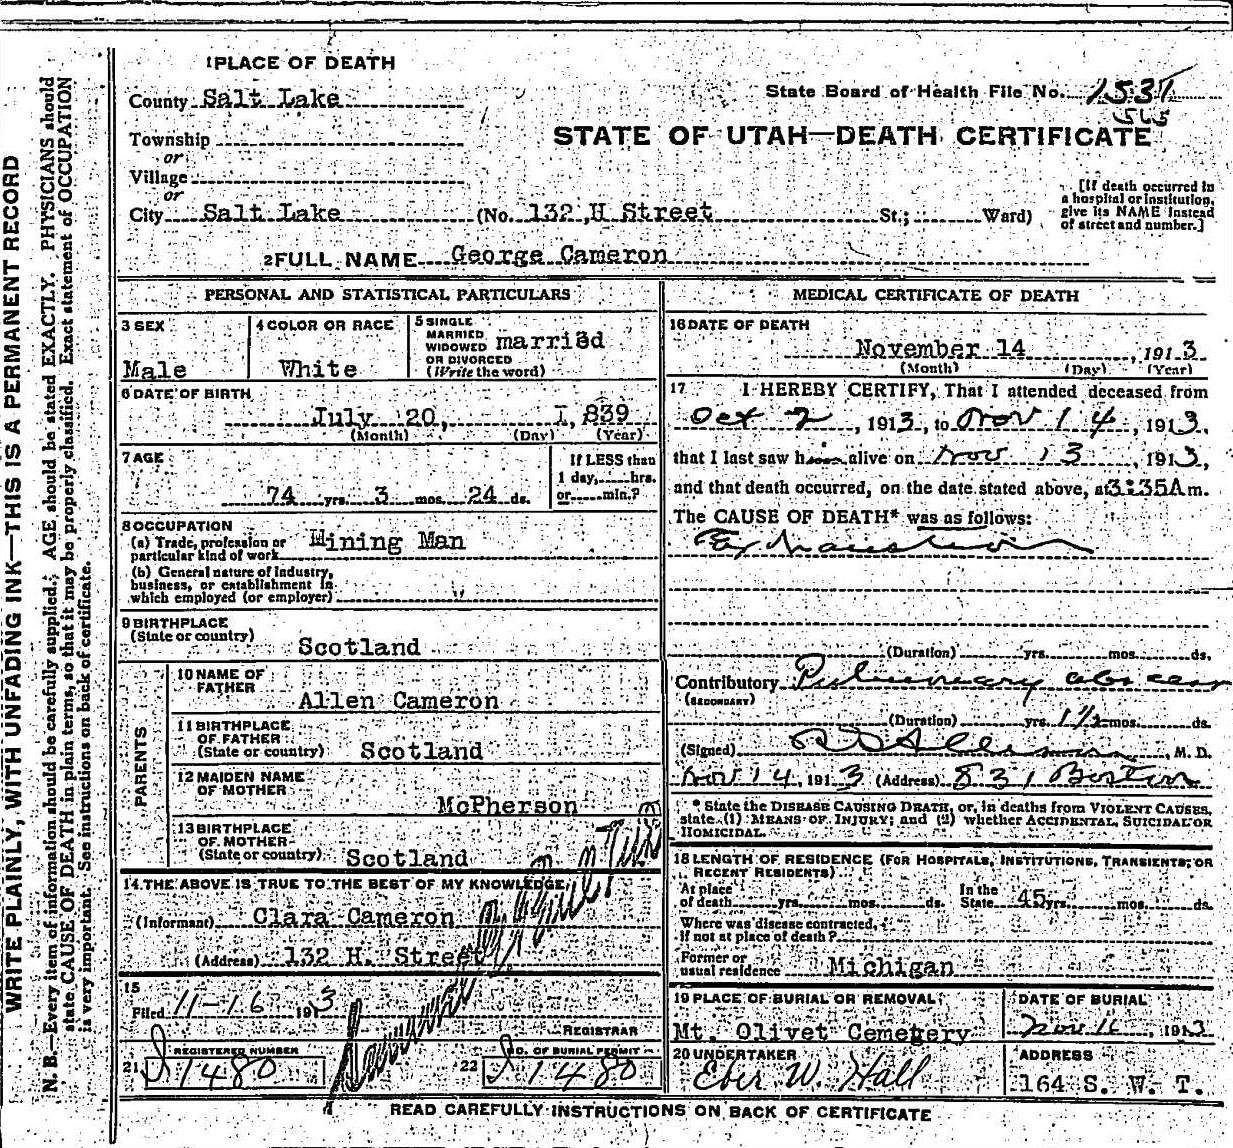 WRITE PLAINLY, WITH UNFADING INK—THIS IS A PERMANENT RECORD
N. B.—Every item of information should be carefully supplied. AGE should be stated EXACTLY. PHYSICIANS should
state CAUSE OF DEATH in plain terms, so that it may be properly classified. Exact statement of OCCUPATION
is very important. See instructions on back of certificate.
1 PLACE OF DEATH
County Salt Lake
State Board of Health File No. 1531
565
Township
or
Village
or
STATE OF UTAH—DEATH CERTIFICATE
City Salt Lake (No. 132, H Street St.; Ward)
[If death occurred in
a hospital or institution,
give its NAME instead
of street and number.]
2 FULL NAME George Cameron
PERSONAL AND STATISTICAL PARTICULARS
3 SEX
Male
4 COLOR OR RACE
White
5 SINGLE
MARRIED
WIDOWED
OR DIVORCED
(Write the word)
married
6 DATE OF BIRTH
July 20, 1,839
(Month) (Day) (Year)
7 AGE
74 yrs. 3 mos. 24 ds.
If LESS than
1 day, hrs.
or min.?
8 OCCUPATION
(a) Trade, profession or
particular kind of work Mining Man
(b) General nature of industry,
business, or establishment in
which employed (or employer)
9 BIRTHPLACE
(State or country) Scotland
PARENTS
10 NAME OF
FATHER
Allen Cameron
11 BIRTHPLACE
OF FATHER
(State or country) Scotland
12 MAIDEN NAME
OF MOTHER
McPherson
13 BIRTHPLACE
OF MOTHER
(State or country) Scotland
14 THE ABOVE IS TRUE TO THE BEST OF MY KNOWLEDGE
(Informant) Clara Cameron
(Address) 132 H. Street
15
Filed 11-16 1913
REGISTRAR
21 REGISTERED NUMBER
1480
22 NO. OF BURIAL PERMIT
1480
MEDICAL CERTIFICATE OF DEATH
16 DATE OF DEATH
November 14, 1913
(Month) (Day) (Year)
17 I HEREBY CERTIFY, That I attended deceased from
Oct 2, 1913, to Nov 14, 1913,
that I last saw him alive on Nov 13, 1913,
and that death occurred, on the date stated above, at 3:35A m.
The CAUSE OF DEATH* was as follows:
Exhaustion
(Duration) yrs. mos. ds.
Contributory Pulmonary abscess
(SECONDARY)
(Duration) yrs. 1½ mos. ds.
(Signed) M. D.
Nov 14, 1913 (Address) 831 Boston
* State the DISEASE CAUSING DEATH, or, in deaths from VIOLENT CAUSES,
state (1) MEANS OF INJURY; and (2) whether ACCIDENTAL, SUICIDAL OR
HOMICIDAL.
18 LENGTH OF RESIDENCE (FOR HOSPITALS, INSTITUTIONS, TRANSIENTS, OR
RECENT RESIDENTS)
At place
of death yrs. mos. ds.
In the
State 45 yrs. mos. ds.
Where was disease contracted,
if not at place of death?
Former or
usual residence Michigan
19 PLACE OF BURIAL OR REMOVAL
Mt. Olivet Cemetery
DATE OF BURIAL
Nov 16, 1913
20 UNDERTAKER
Eber W. Hall
ADDRESS
164 S. W. T.
READ CAREFULLY INSTRUCTIONS ON BACK OF CERTIFICATE